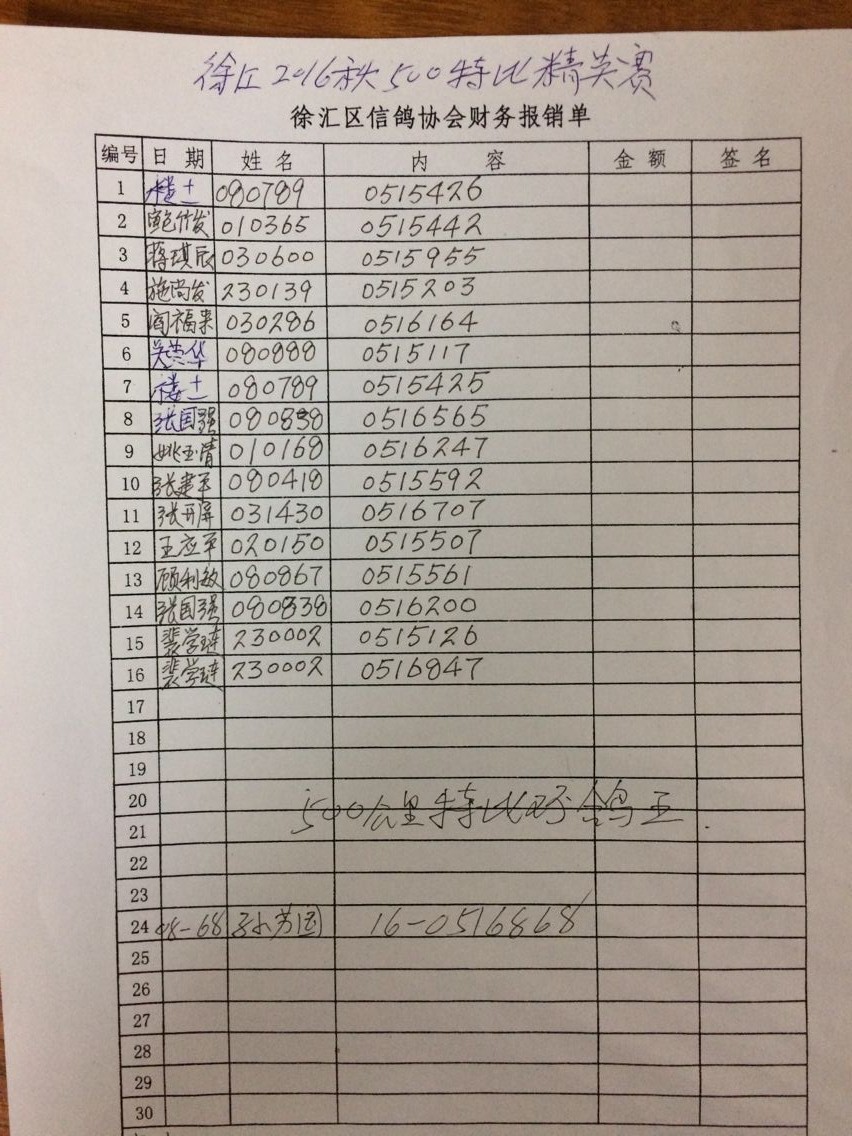 徐汇2016秋500特比精英赛
徐汇区信鸽协会财务报销单
编号 日期 姓名 内容 金额 签名
1 楼士 080789 0515426
2 鲍竹发 010365 0515442
3 蒋琪辰 030600 0515955
4 施尚发 230139 0515203
5 阎福来 030286 0516164
6 关荣华 080888 0515117
7 楼士 080789 0515425
8 张国强 080838 0516565
9 姚玉清 010168 0516247
10 张建平 080418 0515592
11 张开屏 031430 0516707
12 王应平 020150 0515507
13 顾利敏 080867 0515561
14 张国强 080838 0516200
15 裴学琏 230002 0515126
16 裴学琏 230002 0516847
17
18
19
20
500公里特比环鸽王.
21
22
23
24 08-68 孙小芳团 16-0516868
25
26
27
28
29
30